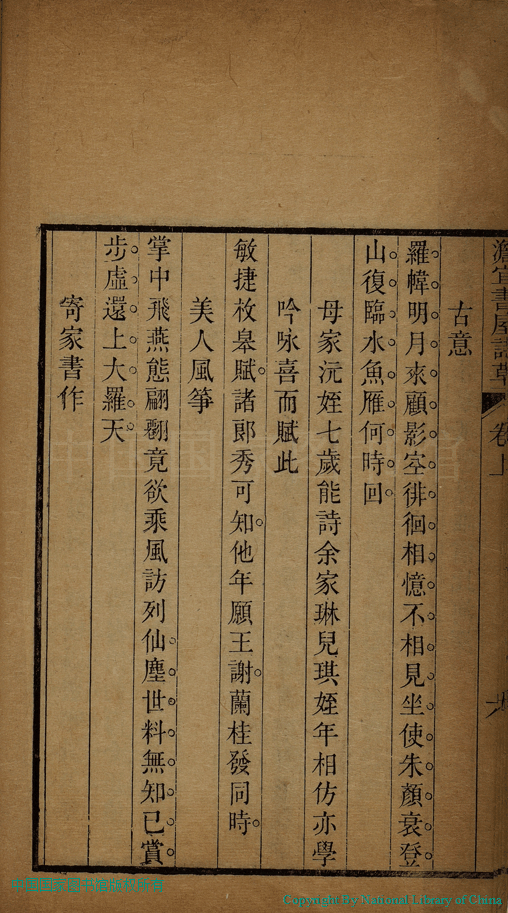 澹宜書屋詩草 卷上
古意
羅幃明月來顧影空徘徊相憶不相見坐使朱顏衰登
山復臨水魚雁何時回
母家沅姪七歲能詩余家琳兒琪姪年相仿亦學
吟咏喜而賦此
敏捷枚皋賦諸郎秀可知他年願王謝蘭桂發同時
美人風箏
掌中飛燕態翩翾竟欲乘風訪列仙塵世料無知已賞
步虛還上大羅天
寄家書作
Copyright By National Library of China